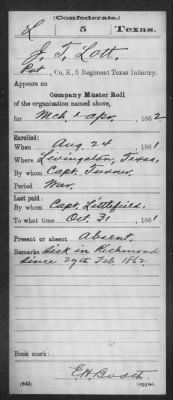 (Confederate.)
L 5 Texas.
J. T. Lott.
Pvt, Co. K, 5 Regiment Texas Infantry.
Appears on
Company Muster Roll
of the organization named above,
for Mch & Apr, 1862
Enrolled:
When Aug. 24 1861
Where Livingston, Texas.
By whom Capt. Turner
Period War.
Last paid:
By whom Capt. Littlefield.
To what time Oct. 31, 1861
Present or absent Absent.
Remarks: Sick in Richmond
since 27th Feb. 1862.
Book mark:
E H Booth
(642) Copyist.